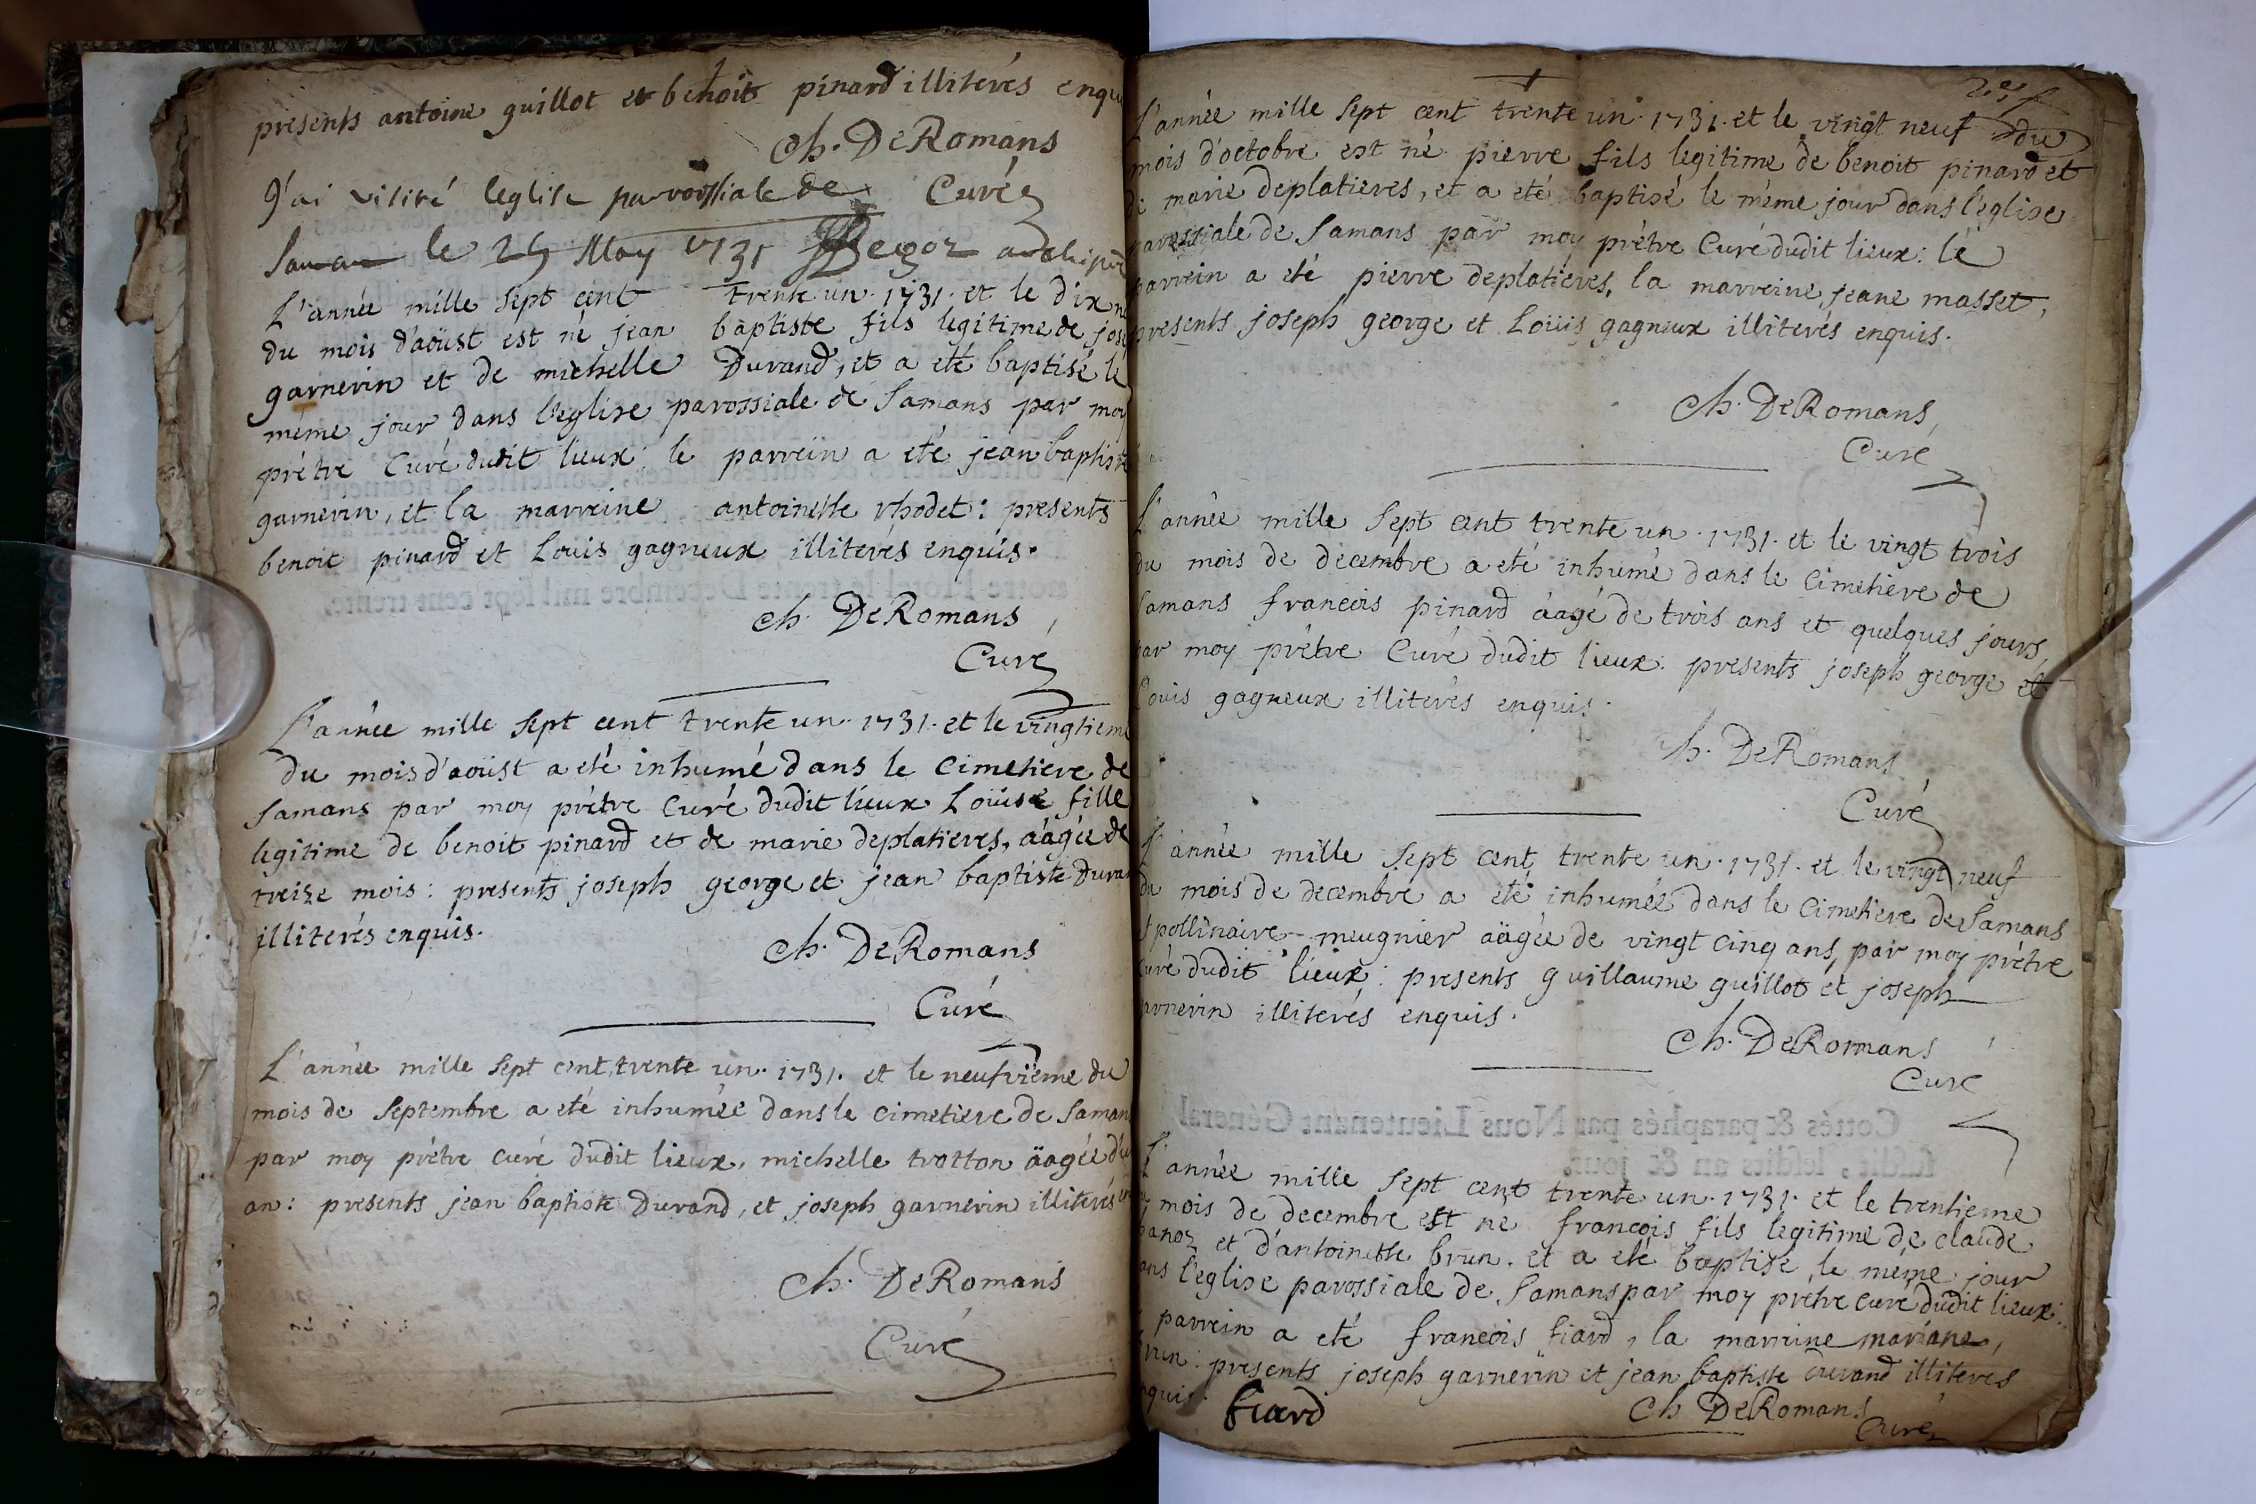 presents antoine guillot et benoit pinard illiterés enqu
Ch. DeRomans
Curé
J'ai visité leglise parroissiale de
Saman le 25 May 1731
L'année mille sept cent trente un. 1731. et le dix n
du mois d'aoûst est né jean baptiste fils legitime de jose
garnerin et de michelle Durand, et a eté baptisé le
meme jour dans l'eglise parossiale de Samans par moy
prêtre Curé dudit lieux: le parrein a eté jean baptiste
garnerin, et la marreine antoinette rhodet: presents
benoit pinard et Louis gagneux illiterés enquis.
Ch. DeRomans
Curé
L'année mille sept cent trente un. 1731. et le vingtieme
du mois d'aoüst a eté inhumé dans le Cimetiere de
Samans par moy prêtre Curé dudit lieux Loüise fille
legitime de benoit pinard et de marie deplatieres, äagée de
treize mois: presents joseph george et jean baptiste Duran
illiterés enquis.
Ch. DeRomans
Curé
L'année mille sept cent trente un. 1731. et le neufvième du
mois de Septembre a eté inhumée dans le cimetiere de Saman
par moy prêtre curé dudit lieux, michelle trotton äagée d'u
an: presents jean baptiste Durand, et joseph garnerin illiterés
Ch. DeRomans
Curé
L'année mille Sept cent trente un. 1731. et le vingt neuf du
mois d'octobre est né pierre fils legitime de benoit pinard et
de marie deplatieres, et a eté baptisé le même jour dans l'eglise
parossiale de Samans par moy prêtre Curé dudit lieux: le
parrein a eté pierre deplatieres, la marreine jeane masset,
presents joseph george et Loüis gagneux illiterés enquis.
Ch. DeRomans
Curé
L'année mille Sept cent trente un. 1731. et le vingt trois
du mois de decembre a eté inhumé dans le Cimetiere de
Samans francois pinard äagé de trois ans et quelques jours
par moy prêtre Curé dudit lieux: presents joseph george et
Louis gagneux illiterés enquis.
Ch. DeRomans
Curé
L'année mille Sept cent trente un. 1731. et le vingt neuf
du mois de decembre a eté inhumée dans le Cimetiere de Samans
pollinaire meugnier äagée de vingt cinq ans, par moy prêtre
curé dudit lieux: presents guillaume guillot et joseph
arnerin illiterés enquis.
Ch. DeRomans
Curé
Cottés & paraphés par Nous Lieutenant Général
susdit, lesdits an & jour.
L'année mille Sept cent trente un. 1731. et le trentieme
mois de decembre est né francois fils legitime de claude
anoz et d'antoinette brun. et a eté baptisé le même jour
ans l'eglise parossiale de Samans par moy prêtre curé dudit lieux:
parrein a eté francois fiard, la marreine mariane,
run: presents joseph garnerin et jean baptiste durand illiterés
nquis.
fiard
Ch DeRomans
Curé